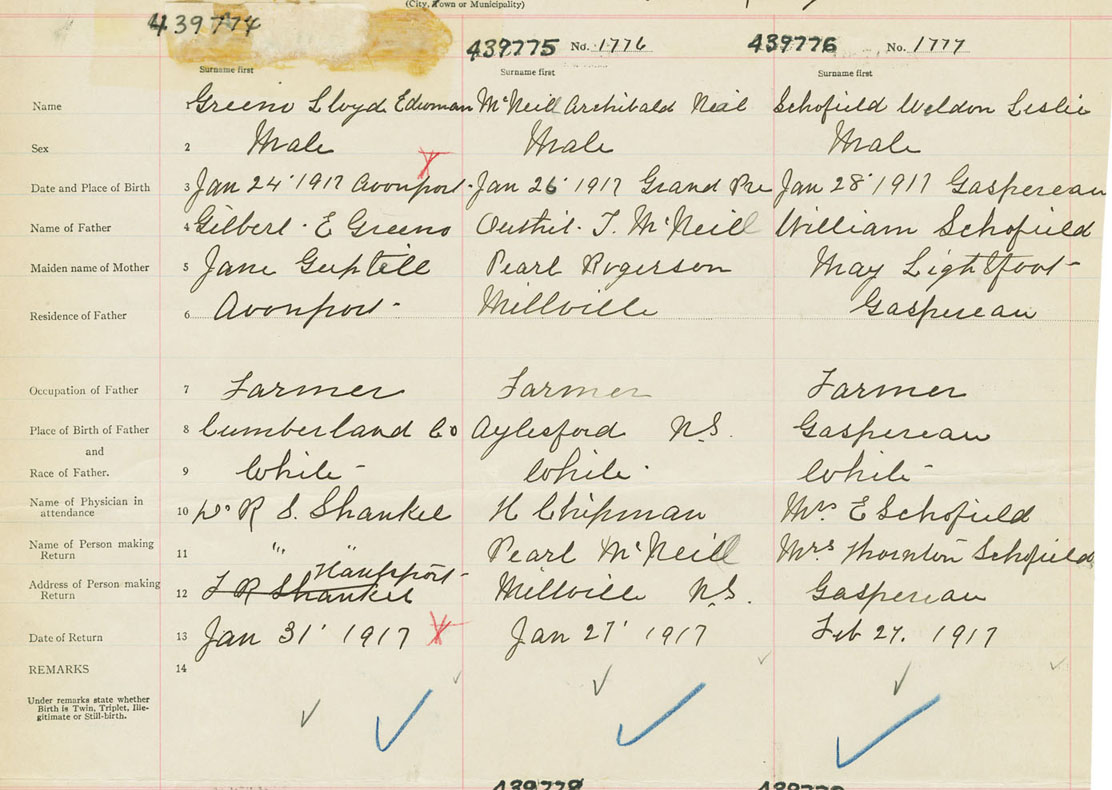 (City, Town or Municipality)
439774
439775 No. 1776 439776 No. 1777
Surname first Surname first Surname first
Name 1 Greeno Lloyd Edwman McNeill Archibald Neil Schofield Weldon Leslie
Sex 2 Male Male Male
Date and Place of Birth 3 Jan 24 1917 Avonport. Jan 26 1917 Grand Pre Jan 28 1917 Gaspereau
Name of Father 4 Gilbert. E Greeno T. McNeill William Schofield
Maiden name of Mother 5 Jane Guptill Pearl Rogerson May Lightfoot
Residence of Father 6 Avonport Millville Gaspereau
Occupation of Father 7 Farmer Farmer Farmer
Place of Birth of Father 8 Cumberland Co Aylesford N.S. Gaspereau
and
Race of Father. 9 White White White
Name of Physician in 10 Dr R S. Shankel H Chipman Mrs E Schofield
attendance
Name of Person making 11 " " Pearl McNeill Mrs Thornton Schofield
Return
Hantsport
Address of Person making 12 F R Shankel Millville N.S. Gaspereau
Return
Date of Return 13 Jan 31 1917 X Jan 27 1917 Feb 27. 1917
REMARKS 14
Under remarks state whether
Birth is Twin, Triplet, Ille-
gitimate or Still-birth.
439778